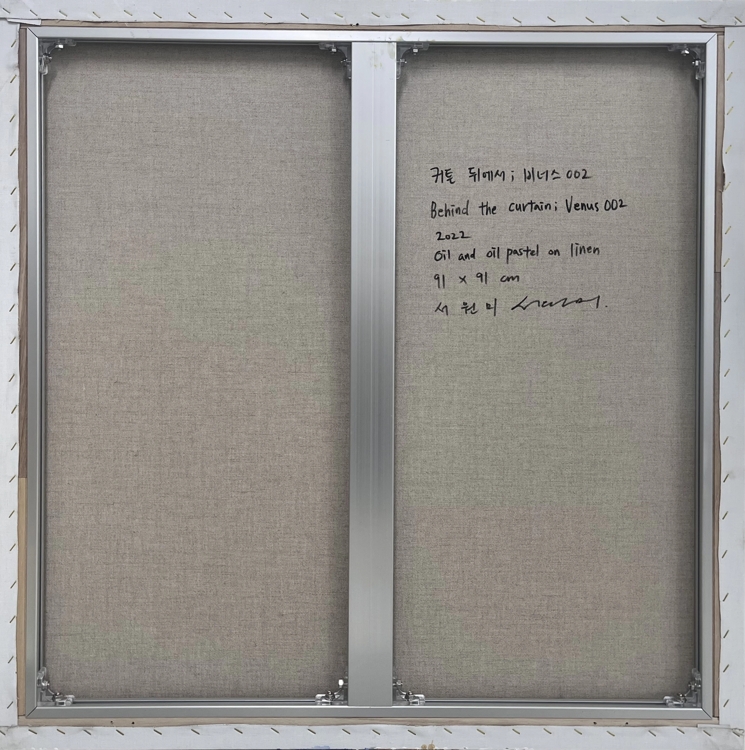 커튼 뒤에서 ; 비너스 002
Behind the curtain ; Venus 002
2022
Oil and oil pastel on linen
91 x 91 cm
서 원 미